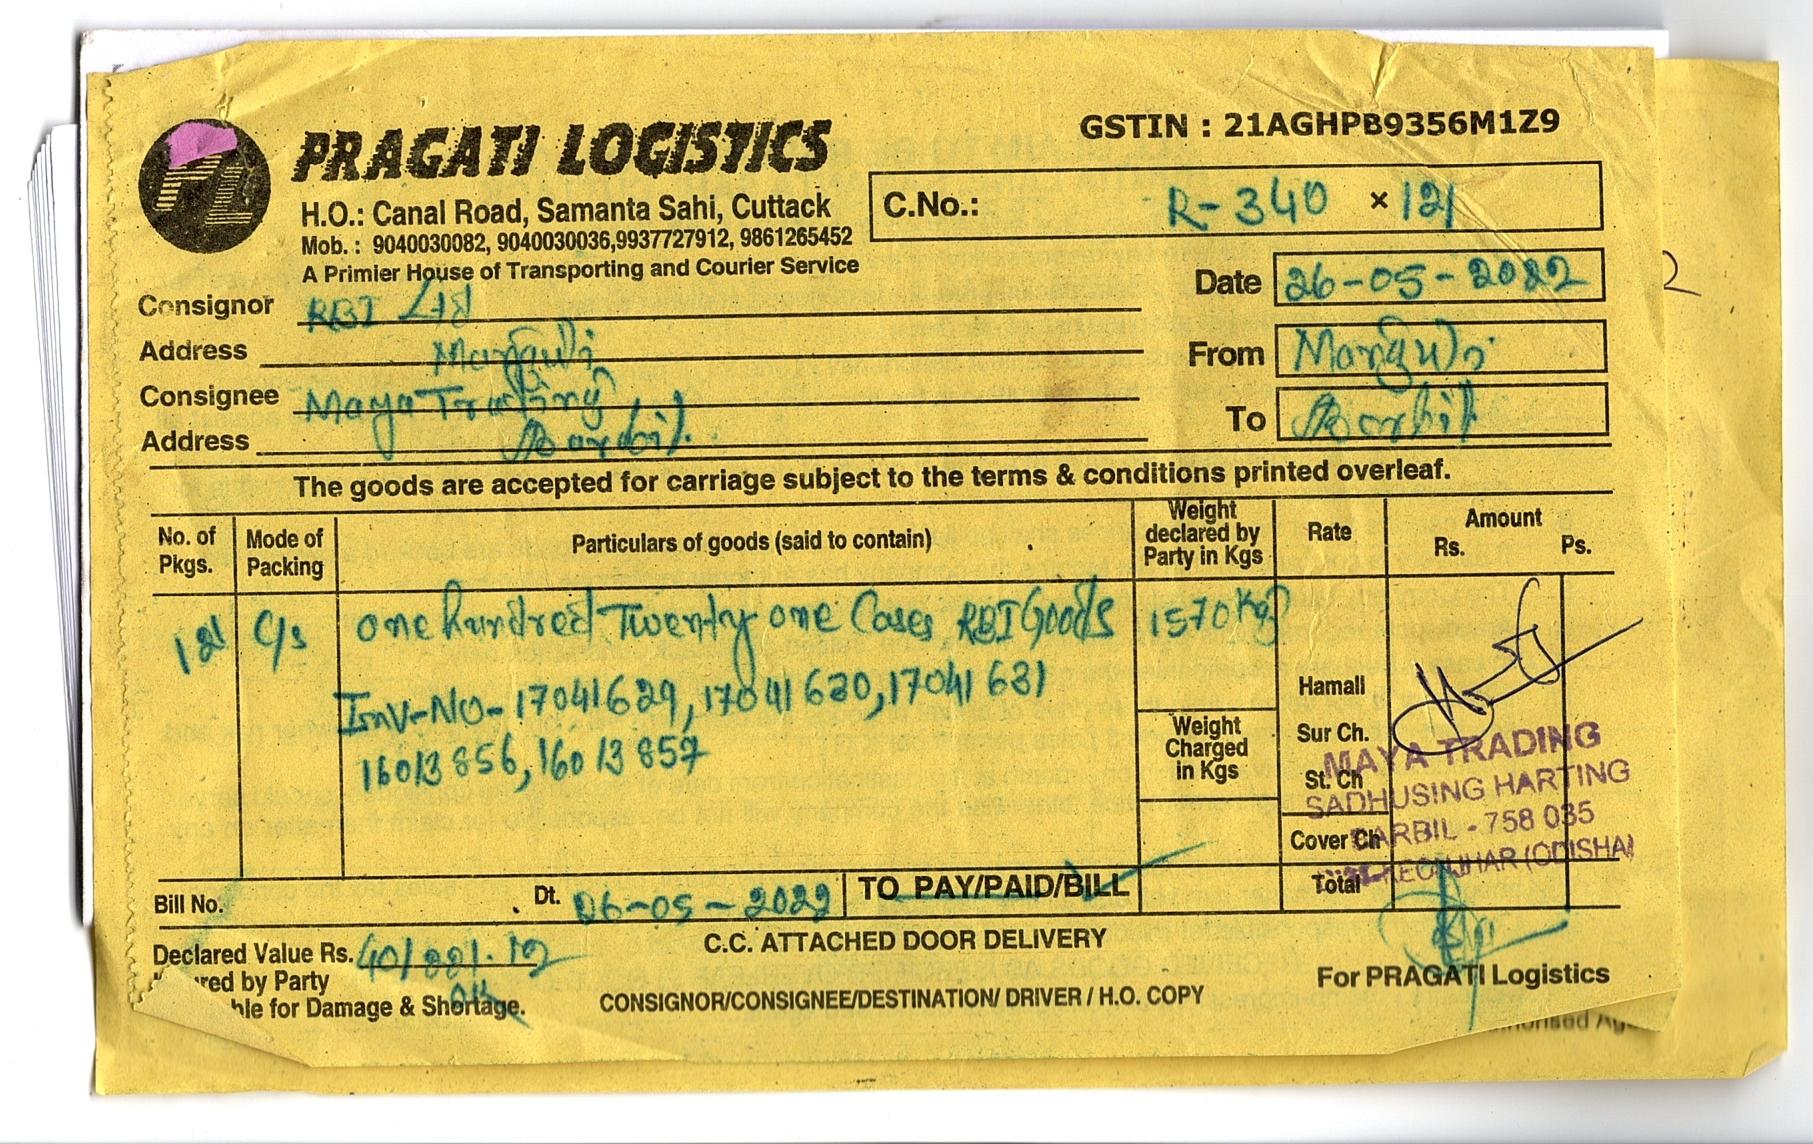 PL
PRAGATI LOGISTICS
GSTIN : 21AGHPB9356M1Z9
H.O.: Canal Road, Samanta Sahi, Cuttack
Mob. : 9040030082, 9040030036,9937727912, 9861265452
A Primier House of Transporting and Courier Service
C.No.: R-340 × 121
Date 26-05-2022
Consignor RBI Ltd
Address
From
Consignee Maya Trading
To Barbil
Address Barbil
The goods are accepted for carriage subject to the terms & conditions printed overleaf.
No. of Pkgs. Mode of Packing Particulars of goods (said to contain) Weight declared by Party in Kgs Rate Amount Rs. Ps.
121 C/s one hundred Twenty one Cases RBI Goods 1570 Kg
Inv-No-17041629, 17041630, 17041631
16013856, 16013857
Hamall
Weight Charged in Kgs
Sur Ch.
St. Ch
Cover Ch
MAYA TRADING
SADHUSING HARTING
BARBIL - 758 035
KEONJHAR (ODISHA)
Total
Bill No. Dt. 06-05-2022 TO PAY/PAID/BILL
Declared Value Rs.
C.C. ATTACHED DOOR DELIVERY
red by Party
ble for Damage & Shortage.
CONSIGNOR/CONSIGNEE/DESTINATION/ DRIVER / H.O. COPY
For PRAGATI Logistics